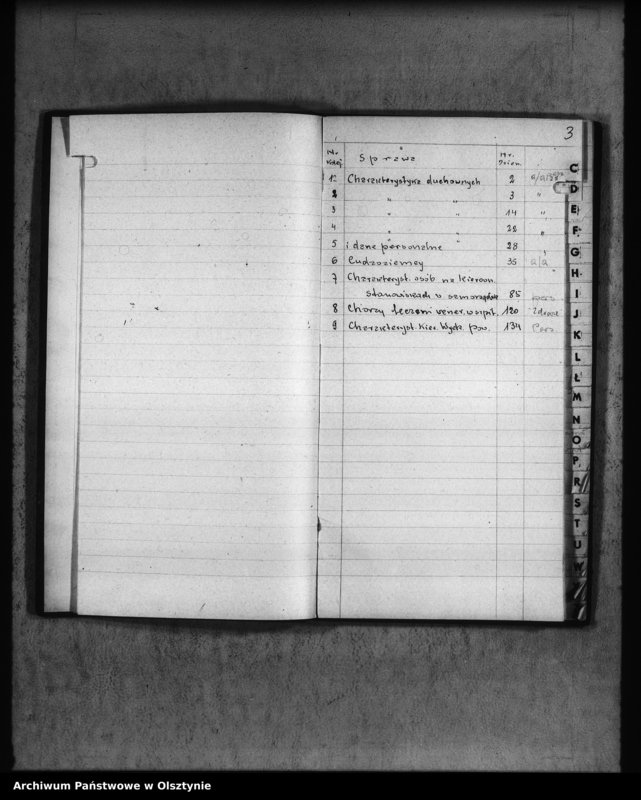 3
Nr. Kolej. Sprawa Nr. Dzien.
1 Charakterystyka duchownych 2 a/a
2 " " 3 "
3 " " 14 "
4 " " 22 "
5 i dane personalne " 28 "
6 Cudzoziemcy 35 a/a
7 Charakteryst. osób na kierown.
stanowiskach w samorządzie 85 pers.
8 Chorzy leczeni vener. w szpit. 120 Zdrow.
9 Charakteryst. Kier. Wydz. pow. 134 Pers.
C
D
E
F
G
H
I
J
K
L
Ł
M
N
O
P
R
S
T
U
W
Archiwum Państwowe w Olsztynie